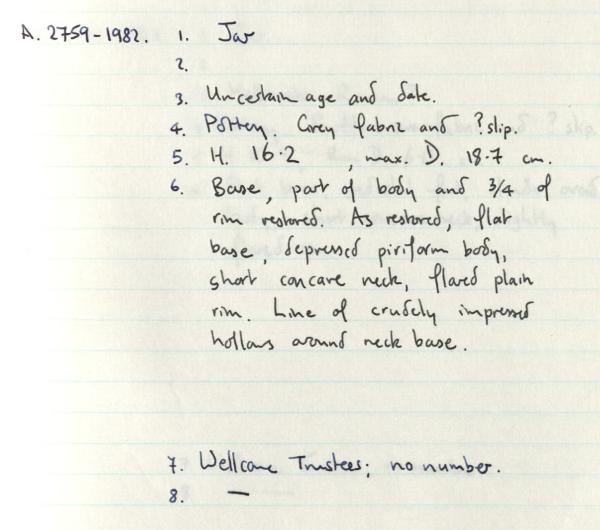 A. 2759-1982. 1. Jar
2.
3. Uncertain age and date.
4. Pottery. Grey fabric and ? slip.
5. H. 16.2 , max. D. 18.7 cm.
6. Base, part of body and 3/4 of
rim restored. As restored, flat
base, depressed piriform body,
short concave neck, flared plain
rim. Line of crudely impressed
hollows around neck base.
7. Wellcome Trustees; no number.
8. —